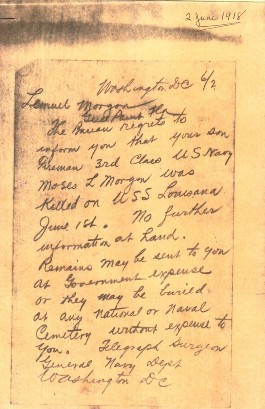 2 June 1918
Washington DC 6/2
Lemuel Morgan
The Bureau regrets to
inform you that your son
Fireman 3rd Class US Navy
Moses L Morgan was
Killed on USS Louisana
June 1st. No further
information at hand.
Remains may be sent to you
at Government expense
or they may be buried
at any National or Naval
Cemetery without expense to
you. Telegraph Surgeon
General Navy Dept
Washington DC